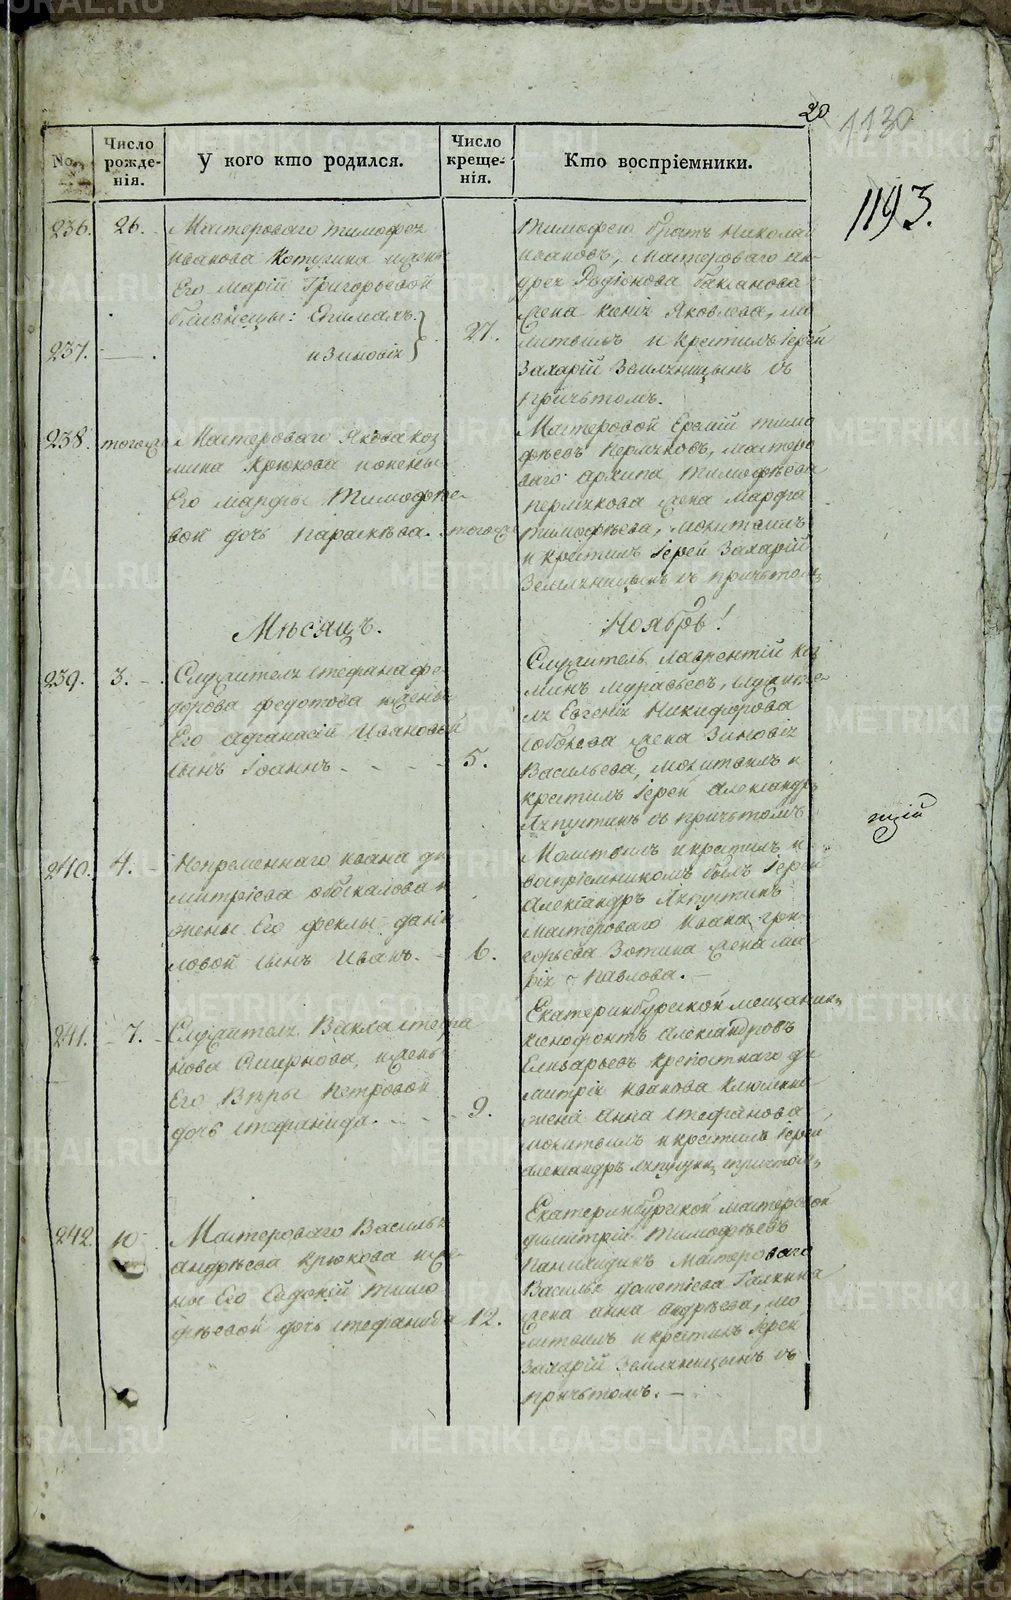 20
1130
1193.
No.
Число рожде-нія.
У кого кто родился.
Число креще-нія.
Кто воспріемники.
236. 26.
Мастероваго Тимофея
Иванова Котугина и жены
Его Маріи Григорьевой
близнецы:
237.
и Зиновія
27.
Тимофею братъ Николай
Ивановъ, мастероваго Ан-
дрея Родіонова Баканова
жена Ксенія Яковлева, мо
литвилъ и крестилъ Іерей
Захарій Земляницынъ съ
причьтомъ.
238. тогожъ
Мастероваго Якова Коз
мина Крюкова и жены
Его Марфы Тимофее-
вой дочь Параскева.
тогожъ
Мастеровой Ермій Тимо
фѣевъ Пермяковъ, мастеро
ваго Архипа Тимофѣева
Пермякова жена Марфа
Тимофѣева, молитвилъ
и крестилъ Іерей Захарій
Земляницынъ съ причьтомъ
Мѣсяцъ. Ноябрь!
239. 3.
Служителя Стефана Фе
дорова Федотова и жены
Его Афанасіи Ивановой
сынъ Іоаннъ
5.
Служитель Лаврентій Коз
минъ Муравьевъ, служите
ля Евгенія Никифорова
Соболева жена Зиновія
Васильева, молитвилъ и
крестилъ Іерей Александръ
Ляпустинъ съ причьтомъ
240. 4.
Непременнаго Ивана Ди
митріева Обыскалова и
жены Его Феклы Дани
ловой сынъ Иванъ.
6.
Молитвилъ и крестилъ и
воспріемникомъ былъ Іерей
Александръ Ляпустинъ
мастероваго Ивана Гри-
горьева Зотина жена Ма-
рія Павлова.
241. 7.
Служителя Вакла Стефа
нова Смирнова, и жены
Его Вѣры Петровой
дочь Стефанида.
9.
Екатеринбургской мещанинъ
Ксенофонтъ Александровъ
Елизарьевъ крепостнаго Ди
митрія Иванова
жена Анна Стефанова
молитвилъ и крестилъ Іерей
Александръ Ляпустинъ съ причтомъ
242. 10
Мастероваго Василья
Андрѣева Крюкова и же-
ны Его Евдокіи Тимо
фѣевой дочь Стефанида
12.
Екатеринбургской мастеровой
Димитрій Тимофѣевъ
Панихидинъ мастероваго
Василья Дометіева Галкина
жена Анна Андрѣева, мо
литвилъ и крестилъ Іерей
Захарій Земляницынъ съ
причьтомъ.
METRIKI.GASO-URAL.RU